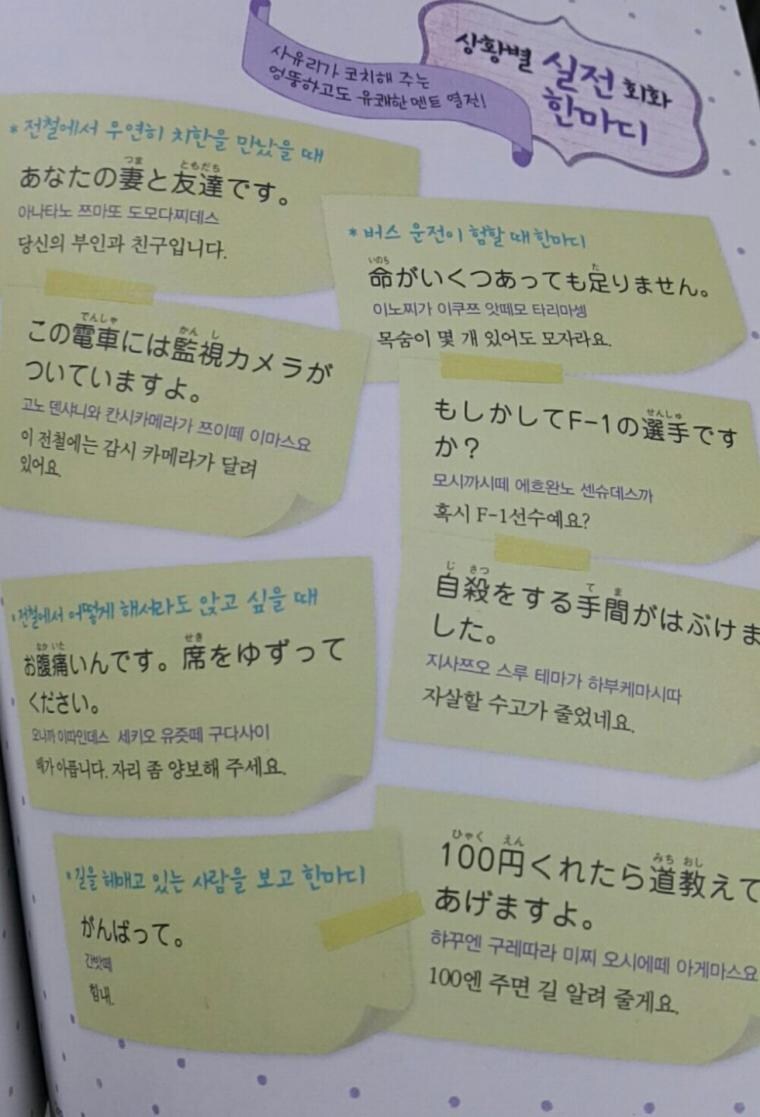 상황별 실전 회화
한마디
사유리가 코치해 주는
엉뚱하고도 유쾌한 멘트 열전!
*전철에서 우연히 치한을 만났을 때
つま ともだち
あなたの妻と友達です。
아나타노 쯔마또 도모다찌데스
당신의 부인과 친구입니다.
でんしゃ かんし
この電車には監視カメラが
ついていますよ。
고노 덴샤니와 칸시카메라가 쯔이떼 이마스요
이 전철에는 감시 카메라가 달려
있어요.
*버스 운전이 험할 때 한마디
いのち た
命がいくつあっても足りません。
이노찌가 이쿠쯔 앗떼모 타리마셍
목숨이 몇 개 있어도 모자라요.
せんしゅ
もしかしてF-1の選手です
か？
모시까시떼 에흐완노 센슈데스까
혹시 F-1선수예요?
じさつ てま
自殺をする手間がはぶけま
した。
지사쯔오 스루 테마가 하부케마시따
자살할 수고가 줄었네요.
*전철에서 어떻게 해서라도 앉고 싶을 때
なかいた せき
お腹痛いんです。席をゆずって
ください。
오나까 이따인데스 세키오 유줏떼 구다사이
배가 아픕니다. 자리 좀 양보해 주세요.
*길을 헤매고 있는 사람을 보고 한마디
がんばって。
간밧떼
힘내.
ひゃく えん みち おし
100円くれたら道教えて
あげますよ。
햐꾸엔 구레따라 미찌 오시에떼 아게마스요
100엔 주면 길 알려 줄게요.